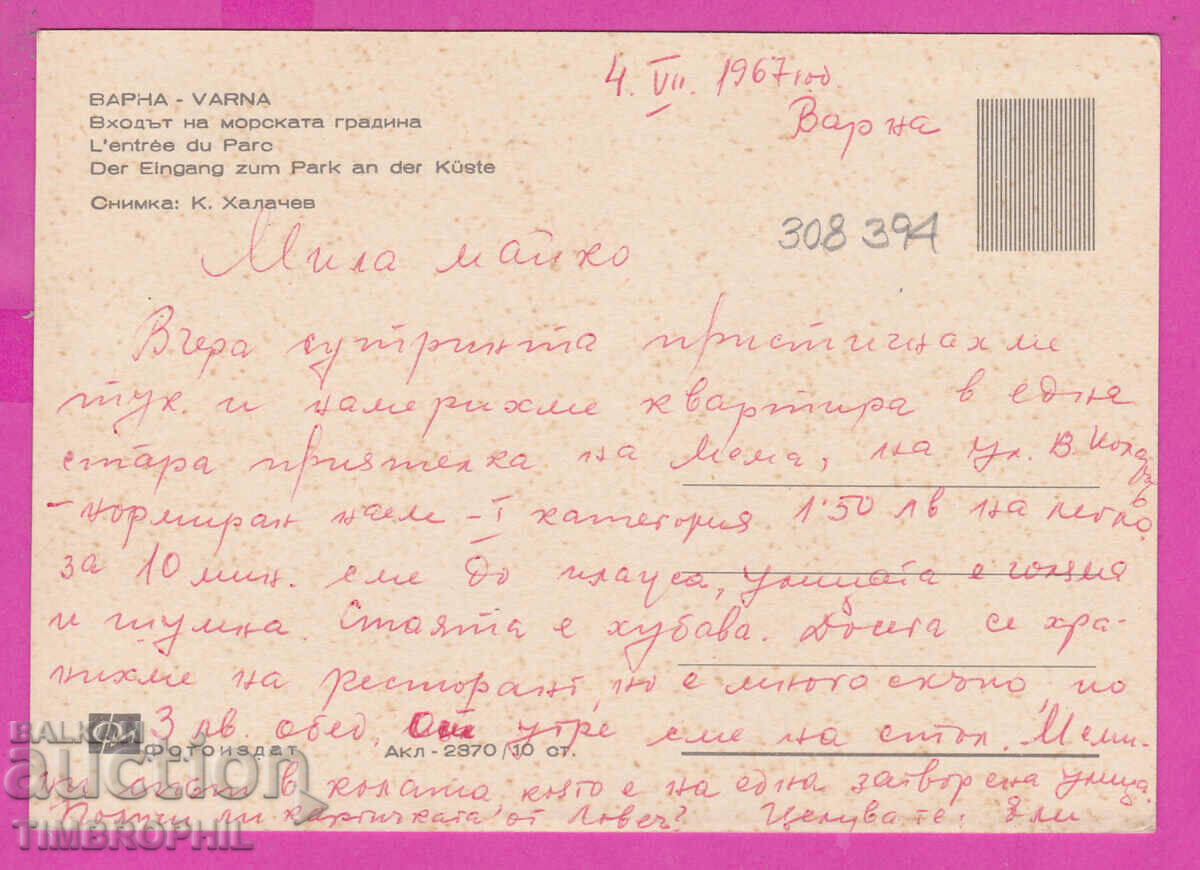 4. VII. 1967 год.
Варна
ВАРНА - VARNA
Входът на морската градина
L'entrée du Parc
Der Eingang zum Park an der Küste
Снимка: К. Халачев
308 394
Мила майко
Вчера сутринта пристигнахме
тук и намерихме квартира в една
стара приятелка на Мема, на ул. В. Коларов
- нормиран наем - I категория 1.50 лв на легло
за 10 мин. сме до плажа, улицата е голяма
и шумна. Стаята е хубава. Досега се хра-
нихме на ресторант, но е много скъпо, по
3 лв. обед, утре сме на стол.
в колата която е на една затворена улица.
Получи ли картичката от Ловеч? Целувате: Ели
Фотоиздат
Акл - 2370 / 10 ст.
BALKON
auction
TIMBROPHIL